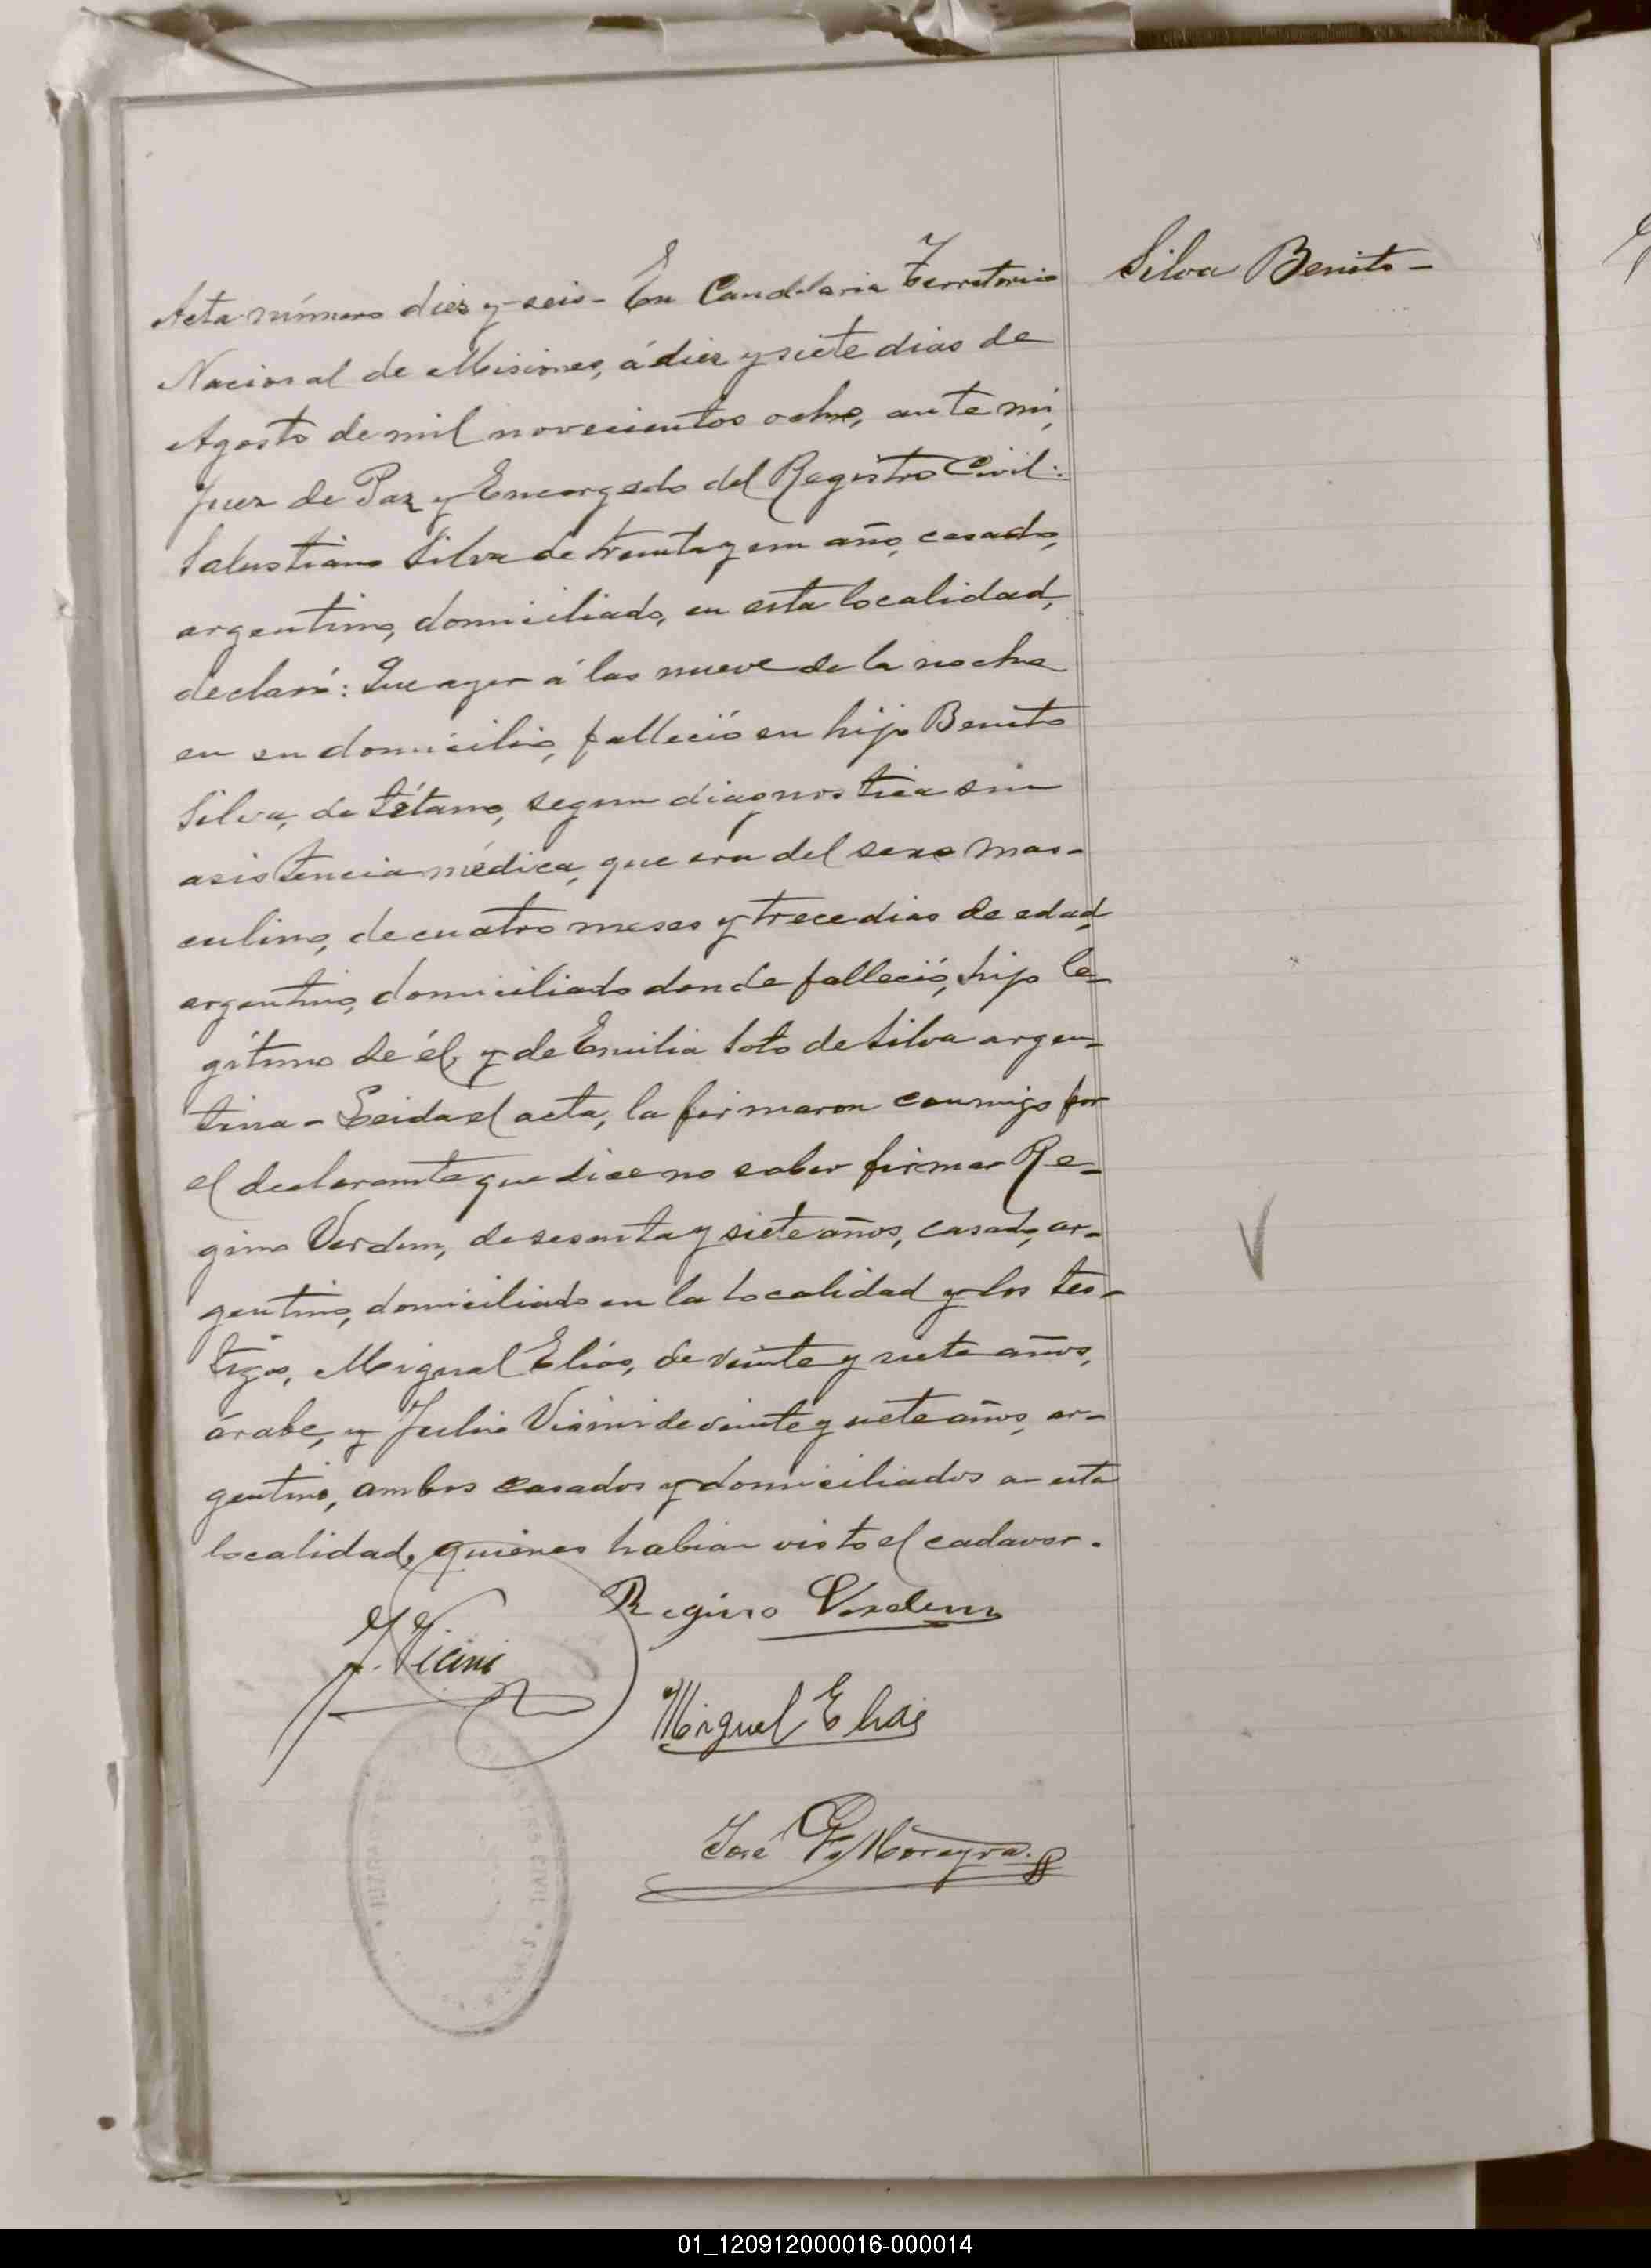 Silva Benito -
Acta número diez y seis - En Candelaria Territorio
Nacional de Misiones, á diez y siete dias de
Agosto de mil novecientos ocho, ante mi,
Juez de Paz y Encargado del Registro Civil:
Salustiano Silva de treinta y un año, casado,
argentino, domiciliado, en esta localidad,
declaró: Que ayer á las nueve de la noche
en su domicilio, falleció su hijo Benito
Silva, de tétano, segun diagnostica sin
asistencia médica, que era del sexo mas-
culino, de cuatro meses y trece dias de edad,
argentino, domiciliado donde falleció, hijo le-
gítimo de él, y de Emilia Soto de Silva argen-
tina - Leida el acta, la firmaron conmigo por
el declarante que dice no saber firmar Re-
gino Verdun, de sesenta y siete años, casado, ar-
gentino, domiciliado en la localidad y los tes-
tigos, Miguel Elias, de veinte y siete años,
árabe, y Julio Vicini de veinte y siete años, ar-
gentino, ambos casados y domiciliados en esta
localidad, quienes habian visto el cadaver.
Regino Verdun
J. Vicini
Miguel Elias
José F. Moreyra
REGISTRO CIVIL
JUZGADO DE
01_120912000016-000014